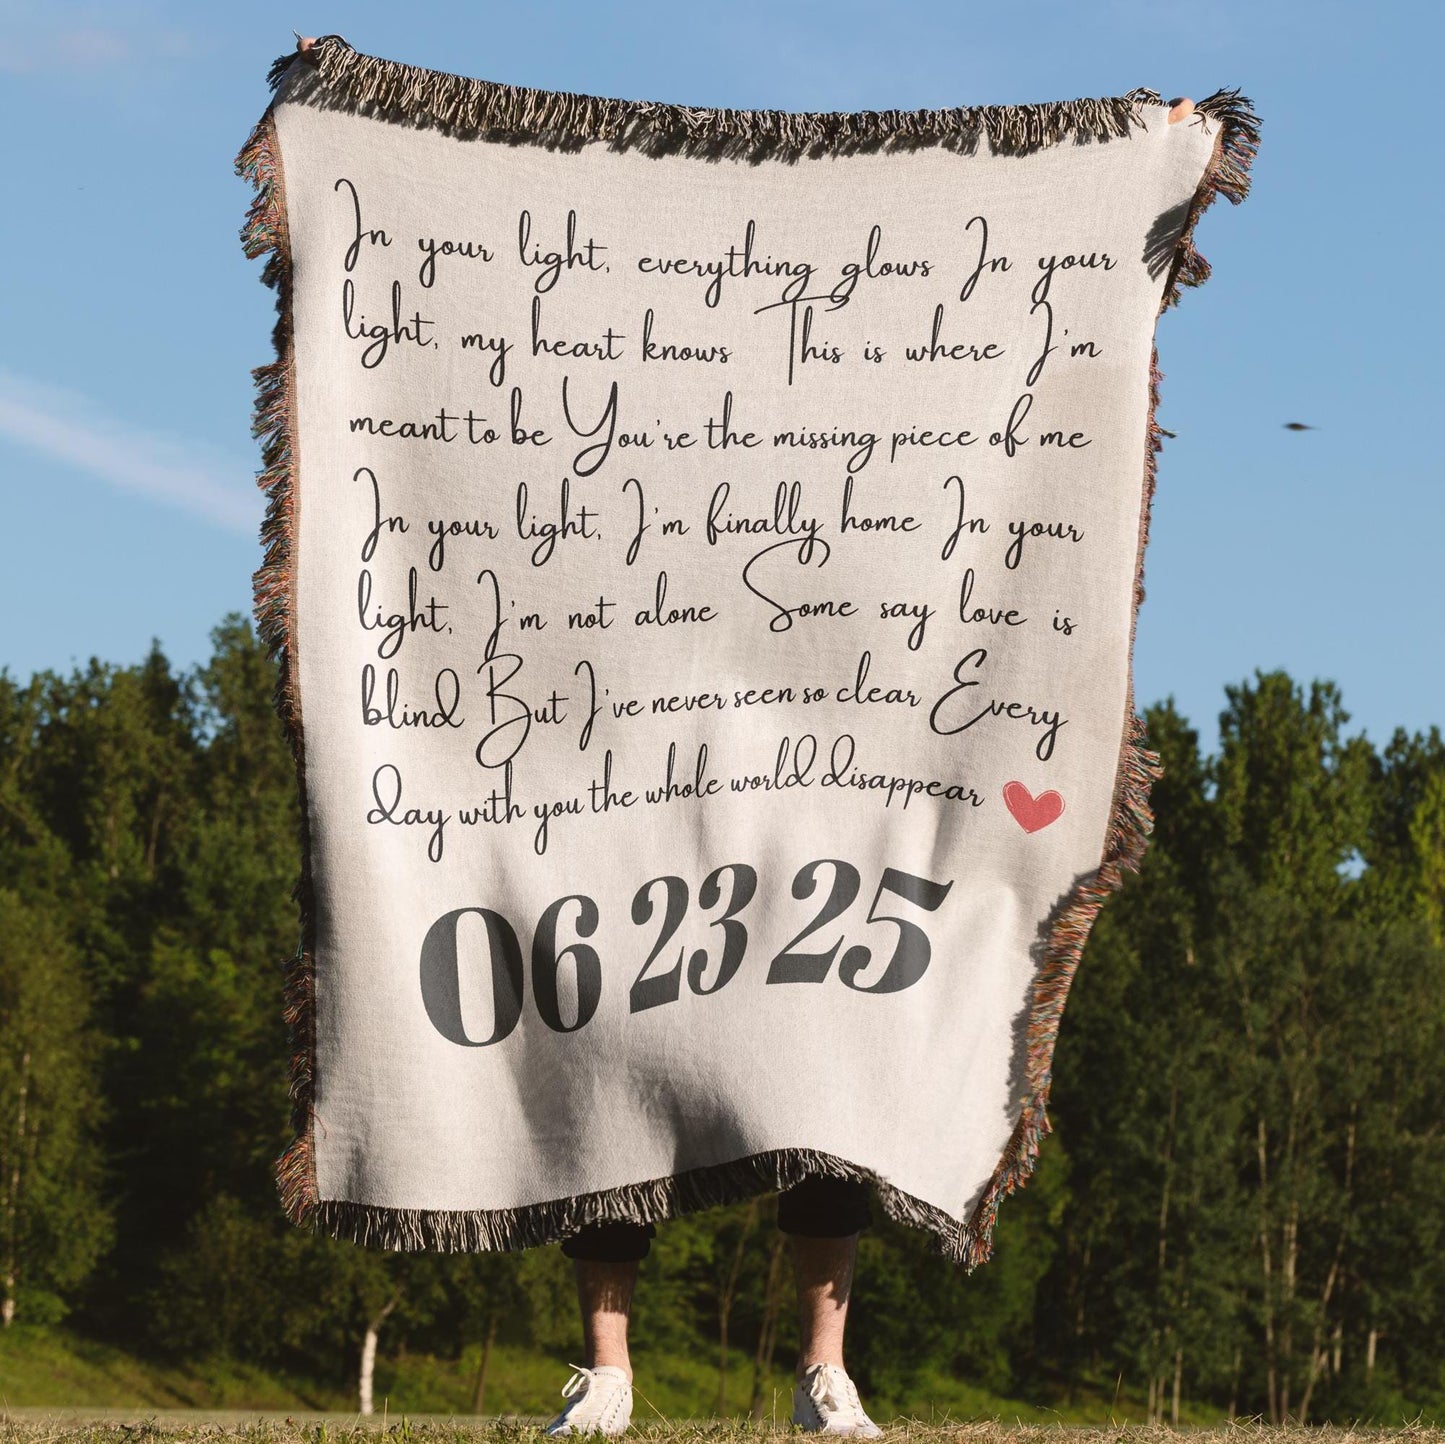 In your light, everything glows In your
light, my heart knows This is where I'm
meant to be You're the missing piece of me
In your light, I'm finally home In your
light, I'm not alone Some say love is
blind But I've never seen so clear Every
day with you the whole world disappear
06 23 25